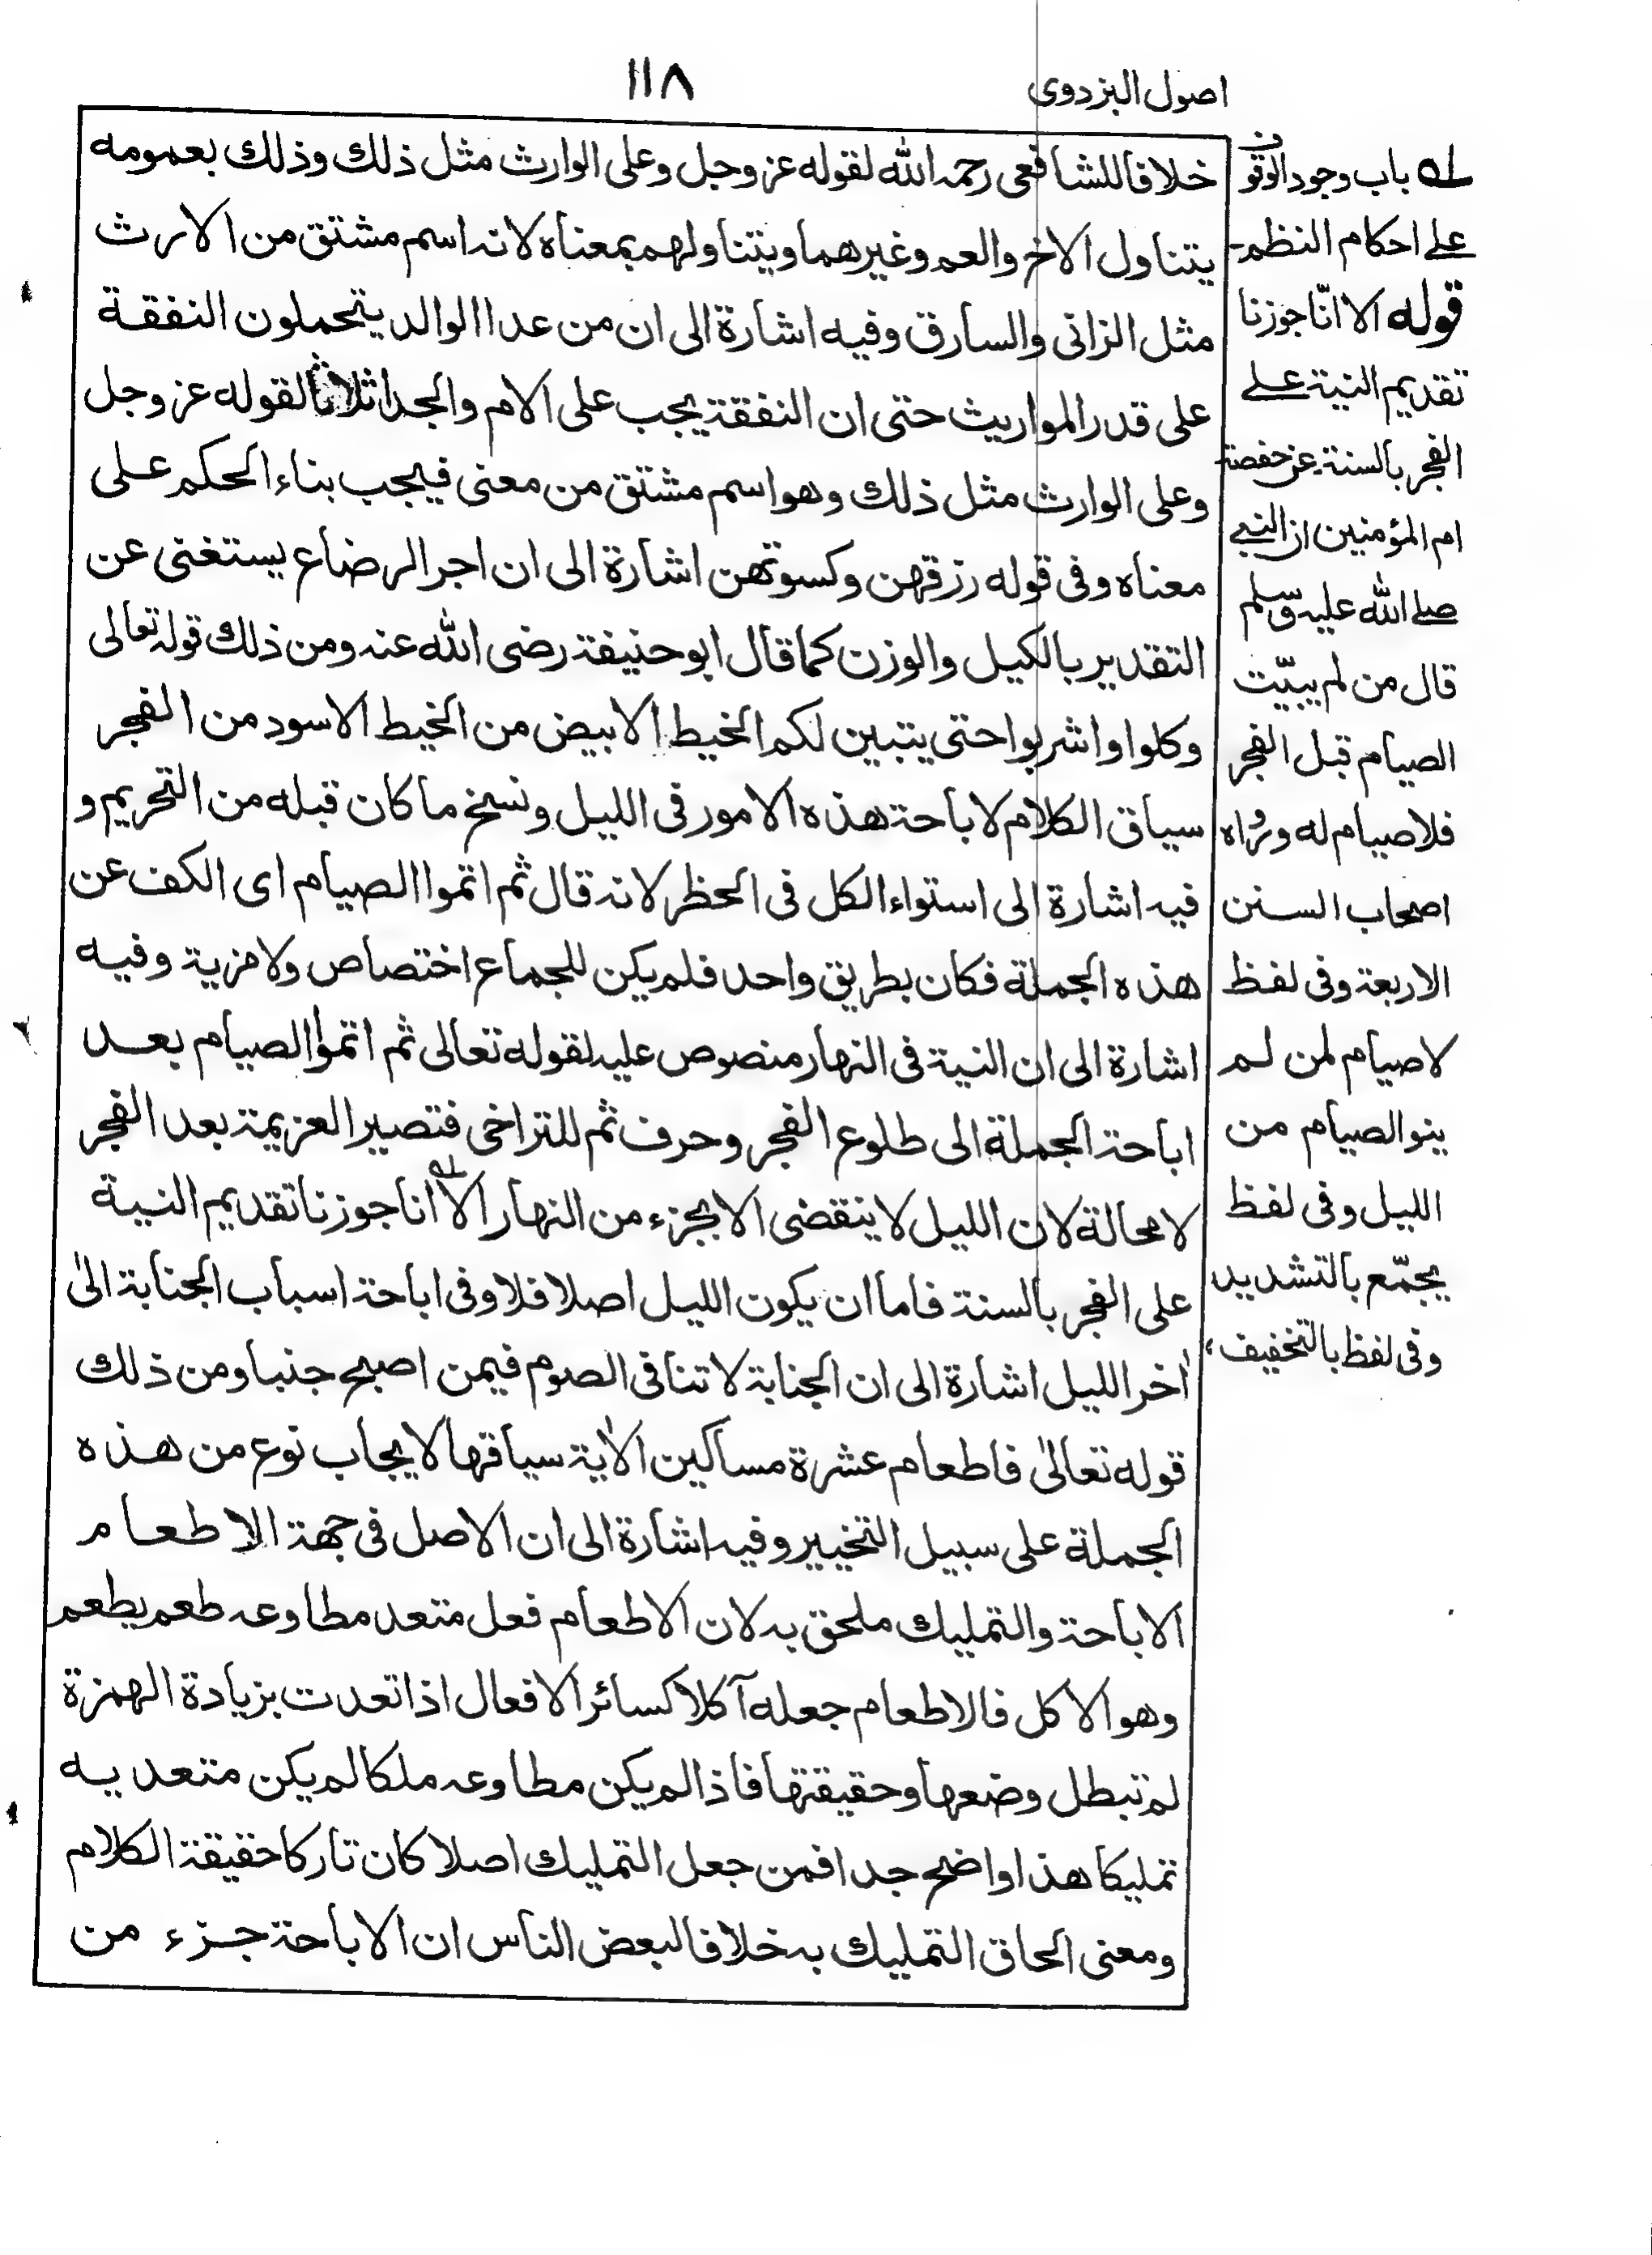 اصول البزدوی
١١٨
خلافا للشافعى رحمہ اللّٰه لقوله عز وجل وعلى الوارث مثل ذلك وذلك بعمومه
يتناول الاخ والعم وغيرهما ويتناولهم بمعناه لانہ اسم مشتق من الارث
مثل الزانى والسارق وفيه اشارة الى ان من عدا الوالد يتحملون النفقة
على قدر المواريث حتى ان النفقة يجب على الام والجد اثلاثا لقوله عز وجل
وعلى الوارث مثل ذلك وهو اسم مشتق من معنى فيجب بناء الحكم على
معناه وفى قوله رزقهن وكسوتهن اشارة الى ان اجر الرضاع يستغنى عن
التقدير بالكيل والوزن كما قال ابو حنيفة رضى اللّٰه عنہ ومن ذلك قولہ تعالى
وكلوا واشربوا حتى يتبين لكم الخيط الابيض من الخيط الاسود من الفجر
سياق الكلام لاباحة هذه الامور فى الليل ونسخ ما كان قبله من التحريم و
فيہ اشارة الى استواء الكل فى الحظر لانہ قال ثم اتموا الصيام اى الكف عن
هذه الجملة فكان بطريق واحد فلم يكن للجماع اختصاص ولا مزية وفيه
اشارة الى ان النية فى النهار منصوص عليہ لقوله تعالى ثم اتموا الصيام بعد
اباحة الجملة الى طلوع الفجر وحرف ثم للتراخى فتصير العزيمة بعد الفجر
لا محالة لان الليل لا ينقضى الا بجزء من النهار الا انا جوزنا تقديم النية
على الفجر بالسنة فاما ان يكون الليل اصلا فلا وفى اباحة اسباب الجنابة الىٰ
اٰخر الليل اشارة الى ان الجنابة لا تنافى الصوم فيمن اصبح جنبا ومن ذلك
قوله تعالىٰ فاطعام عشرة مساكين الاٰية سياقها لايجاب نوع من هذه
الجملة على سبيل التخيير وفيہ اشارة الى ان الاصل فى جهة الاطعام
الاباحة والتمليك ملحق بہ لان الاطعام فعل متعد مطاوعہ طعم يطعم
وهو الاكل فالاطعام جعله آكلا كسائر الافعال اذا تعدت بزيادة الهمزة
لم تبطل وضعها وحقيقتها فاذا لم يكن مطاوعہ ملكا لم يكن متعديه
تمليكا هذا واضح جدا فمن جعل التمليك اصلا كان تاركا حقيقة الكلام
ومعنى الحاق التمليك بہ خلافا لبعض الناس ان الاباحة جزء من
لہ باب وجود الوقوف
علے احكام النظم۔
قوله الا انّا جوزنا
تقديم النية علے
الفجر بالسنة۔ عن حفصة
ام المؤمنين ان النبے
صلے اللّٰه عليہ وسلم
قال من لم يبيّت
الصيام قبل الفجر
فلا صيام له ورواه
اصحاب السنن
الاربعة وفى لفظ
لا صيام لمن لم
ينو الصيام من
الليل وفى لفظ
يجمّع بالتشديد
وفى لفظ بالتخفيف،